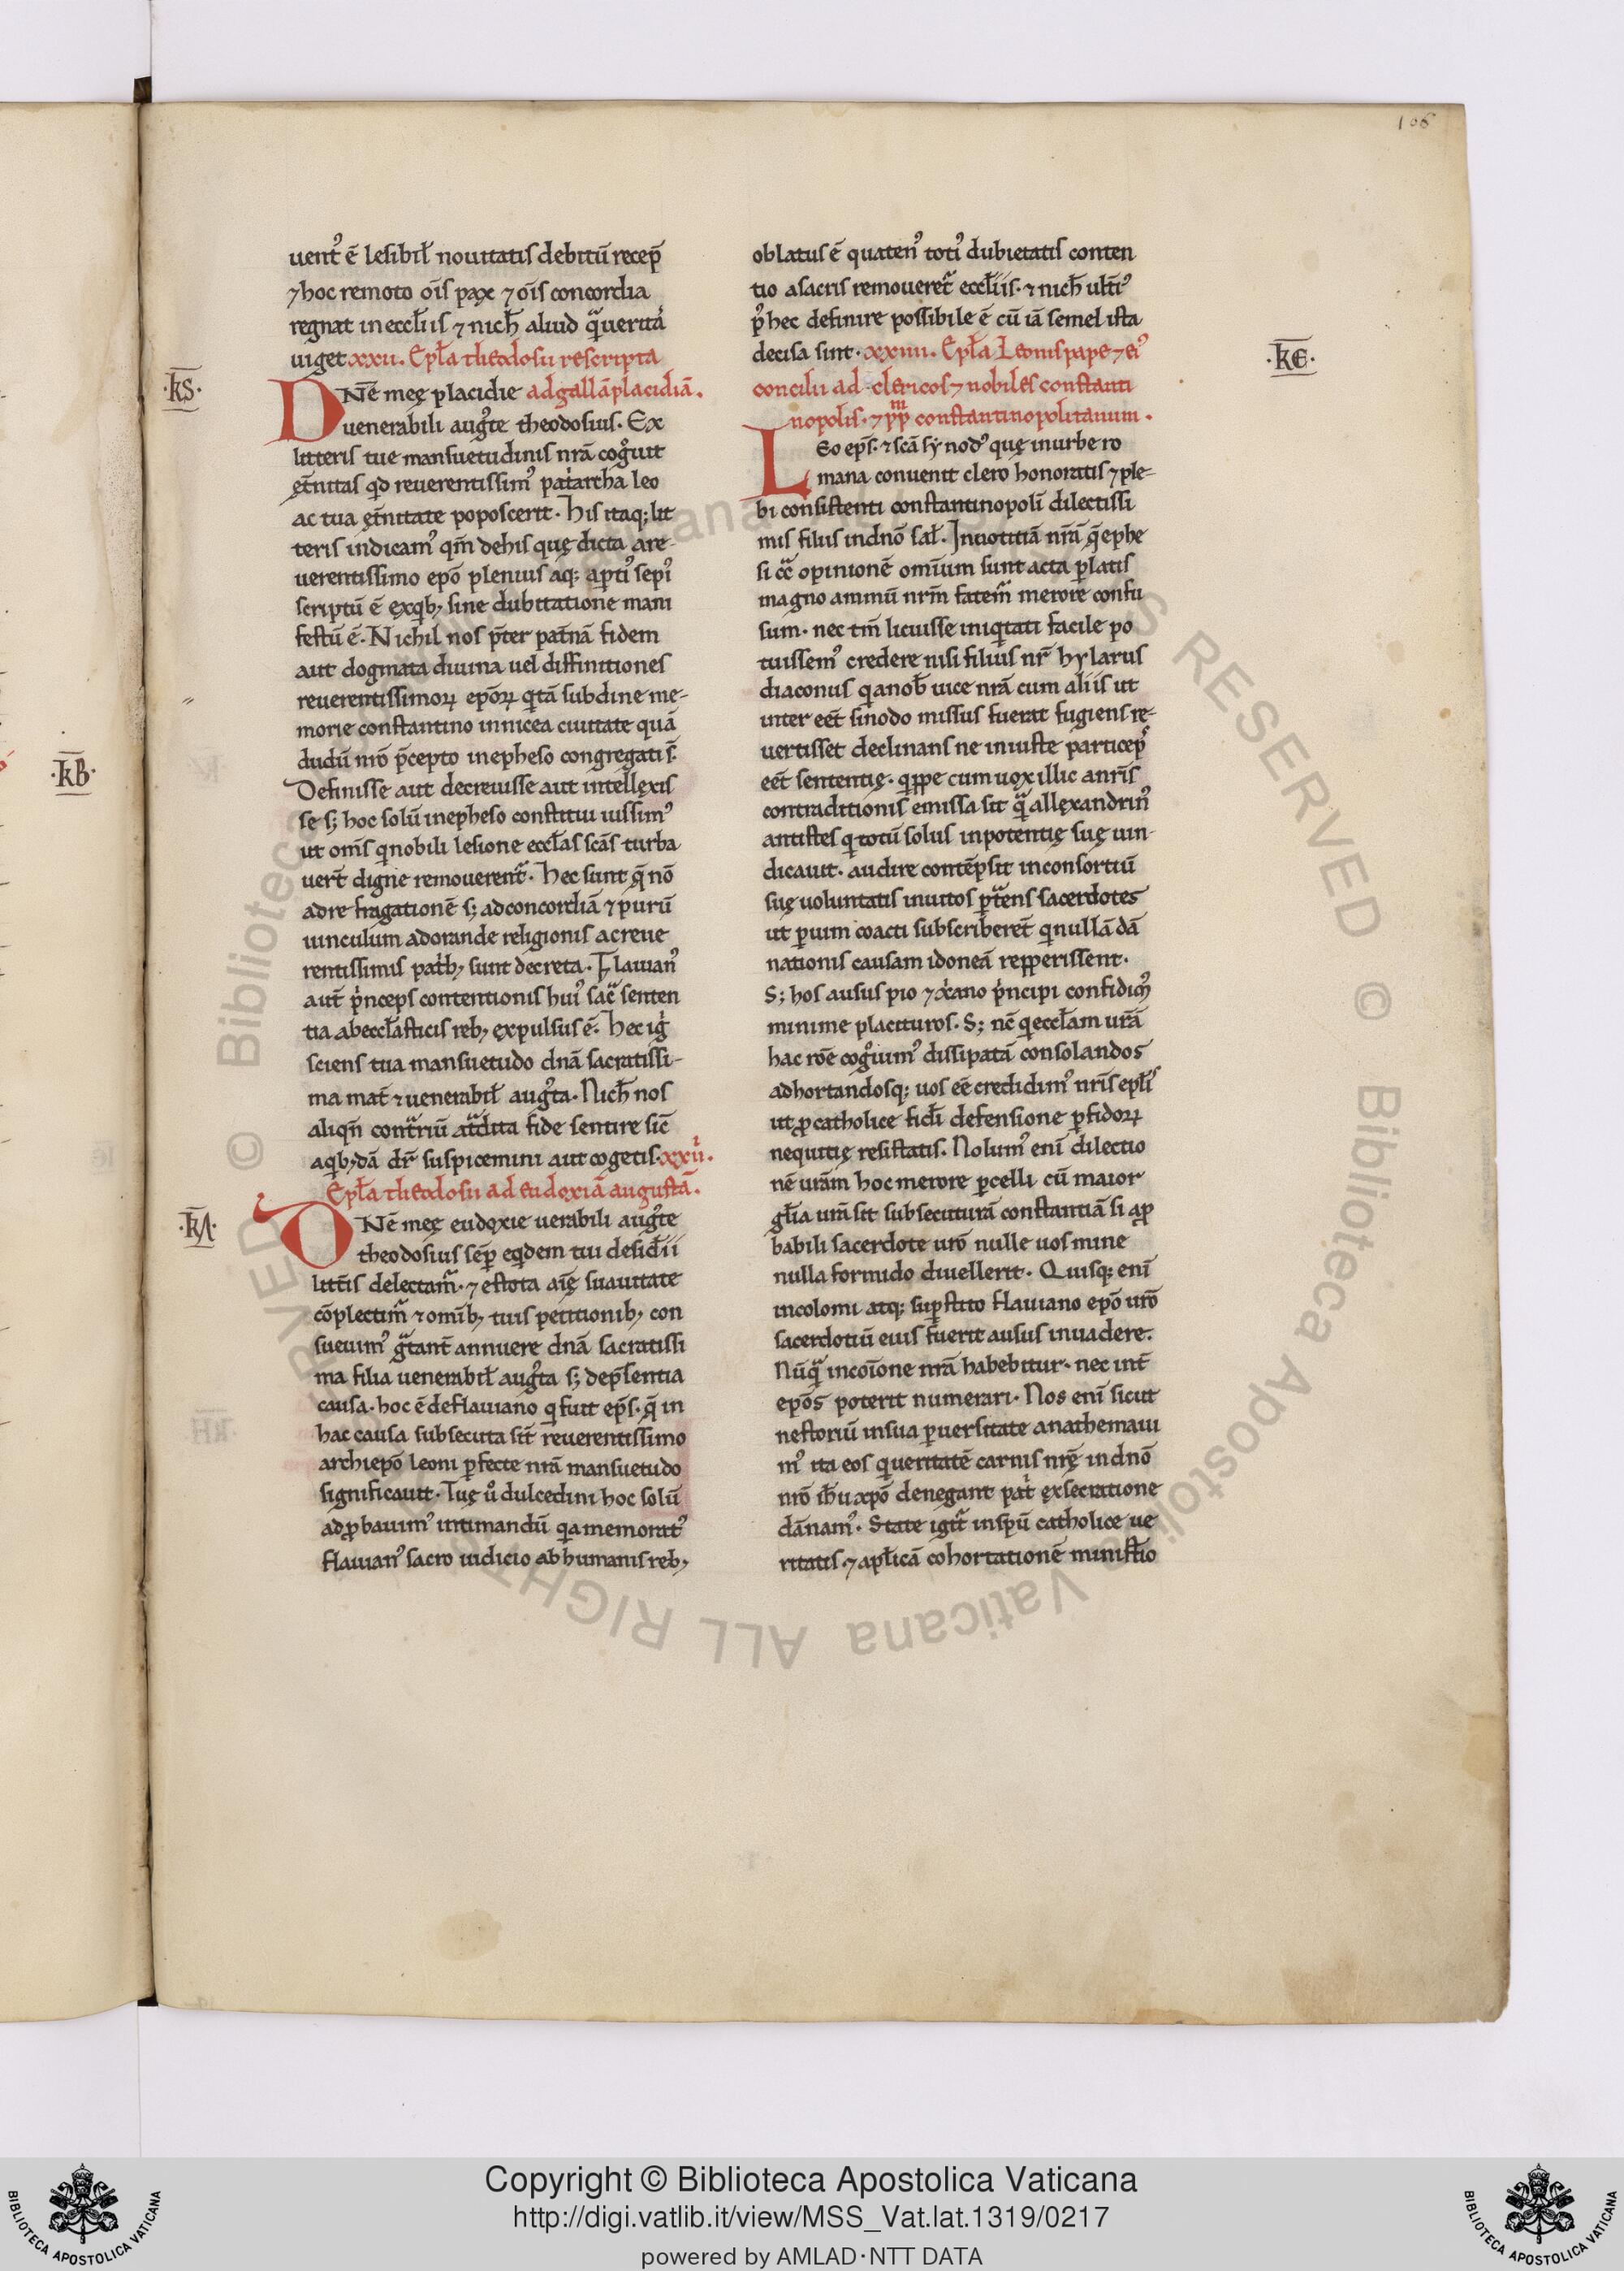 106
uent᾽ ē lesibił nouitatis debitū recep̄
⁊ hoc remoto oīs pax ⁊ oīs concordia
regnat in eccłiis ⁊ nich̄ aliud q̄ uerita
uiget xxii. Epła theodosii rescripta
·k̄S·
DNē meę placidie ad gallā placidiā.
uenerabili augᵗe theodosius. Ex
litteris tue mansuetudinis nrā cogͦuit
ęt̄nitas qd reuerentissim᾽ patͥarcha leo
ac tua ęt̄nitate poposcerit. His itaq; lit
teris indicam᾽ qm̄ de his quę dicta a re-
uerentissimo epō plenius aq; apti᾽ sepi᾽
scriptū ē ex qb; sine dubitatione mani
festū ē. Nichil nos p̄ter pat̄nā fidem
aut dogmata diuina uel diffinitiones
reuerentissimoꝝ epōꝝ q tā sub diue me-
morie constantino in nicea ciuitate quā
dudū nrō p̄cepto in epheso congregati s̄.
Definisse aut decreuisse aut intellexis
se s; hoc solū in epheso constitui iussim᾽
ut oms̄ q nobili lesione eccłas scās turba
uert̄ digne remouerent᾽. Hec sunt q̄ nō
ad refragationē s; ad concordiā ⁊ purū
uinculum adorande religionis a creue
rentissimis patͥb; sunt decreta. Flauian᾽
aut̄ pͥnceps contentionis hui᾽ sac̄ senten
tia ab eccłasticis reb; expulsus ē. Hec igͥ
sciens tua mansuetudo dnā sacratissi-
ma mat̄ ⁊ uenerabił augᵗa. Nich̄ nos
aliqn̄ cont̄riū at̄dita fide sentire sic̄
a qb;dā dr̄ suspicemini aut cogetis. xxiiͥ.
Epła theodosii ad eudoxiā augustā.
·k̄Λ·
DNē meę eudoxie uerabili augᵗe
theodosius sēp̄ eqͥdem tui desid̄ii
litt̄is delectam᾽. ⁊ estota aīę suauitate
cōplectim᾽ ⁊ omīb; tuis petitionib; con
sueuim᾽ gᵃtant̄ annuere dnā sacratissi
ma filia uenerabił augᵗa s; dep̄sentia
causa. hoc ē de flauiano q fuit ep̄s. q̄ in
hac causa subsecuta sit̄ reuerentissimo
archiepō leoni ꝑfecte nrā mansuetudo
significauit. Tuę uͦ dulcedini hoc solū
adꝓbauim᾽ intimandū qa memorat᾽
flauian᾽ sacro iudicio ab humanis reb;
oblatus ē quaten᾽ toti᾽ dubietatis conten
tio a sacris remoueret᾽ eccłiis. ⁊ nich̄ ulti᾽
p᾽ hec definire possibile ē cū iā semel ista
decisa sint. xxiiii. Epła Leonis pape ⁊ ei᾽
·k̄Є·
concilii ad clericos ⁊ nobiles constanti
nopolis. ⁊ pp̄ᵐ constantinopolitanum.
LEo ep̄s. ⁊ scā synod᾽ quę in urbe ro
mana conuenit clero honoratis ⁊ ple-
bi consistenti constantinopoli dilectissi
mis filiis in dnō sał. In notitiā nrā q̄ ephe
si cc̄ opinionē omīum sunt acta ꝑlatis
magno animū nrm̄ fatem᾽ merore confu
sum. nec tm̄ licuisse iniqͥtati facile po
tuissem᾽ credere nisi filius nr̄ hylarus
diaconus q anob̄ uice nrā cum aliis ut
inter eēt sinodo missus fuerat fugiens re-
uertisset declinans ne iniuste particep᾽
eēt sententię. qppe cum uox illic a nrīs
contradictionis emissa sit q̄ allexandrin᾽
antistes q totū solus inpotentię suę uin-
dicauit. audire contēpsit in consortiū
suę uoluntatis inuitos pͣt̄ens sacerdotes
ut ꝑ uim coacti subscriberēt q nullā dā
nationis causam idoneā repperissent.
S; hos ausus pio ⁊ xͥano pͥncipi confidim᾽
minime placituros. S; nc̄ q eccłam urā
hac roē cogͦuim᾽ dissipatā consolandos
adhortandosq; uos eē credidim᾽ nrīs epłis
ut ꝓ catholice fid̄i defensione ꝑfidoꝝ
nequitię resistatis. Nolum᾽ enī dilectio
nē urām hoc merore ꝑcelli cū maior
głia urā sit subsecuturā constantiā si aꝓ
babili sacerdote urō nulle uos mine
nulla formido diuellerit. Quisq; enī
incolomi atq; suꝑstito flauiano epō urō
sacerdotiū eius fuerit ausus inuadere.
Nūqͣ in coīone nrā habebitur. nec int̄
epōs poterit numerari. Nos enī sicut
nestoriū in sua ꝑuersitate anathemaui
m᾽ ita eos q ueritatē carnis nrę in dnō
nrō ih̄u xpō denegant patͥ exsecratione
dānam᾽. State igit᾽ in spū catholice ue
ritatis. ⁊ apłicā cohortationē ministio
·k̄B·
Copyright © Biblioteca Apostolica Vaticana
http://digi.vatlib.it/view/MSS_Vat.lat.1319/0217
powered by AMLAD·NTT DATA
BIBLIOTECA APOSTOLICA VATICANA
BIBLIOTECA APOSTOLICA VATICANA
© Biblioteca Apostolica Vaticana ALL RIGHTS RESERVED